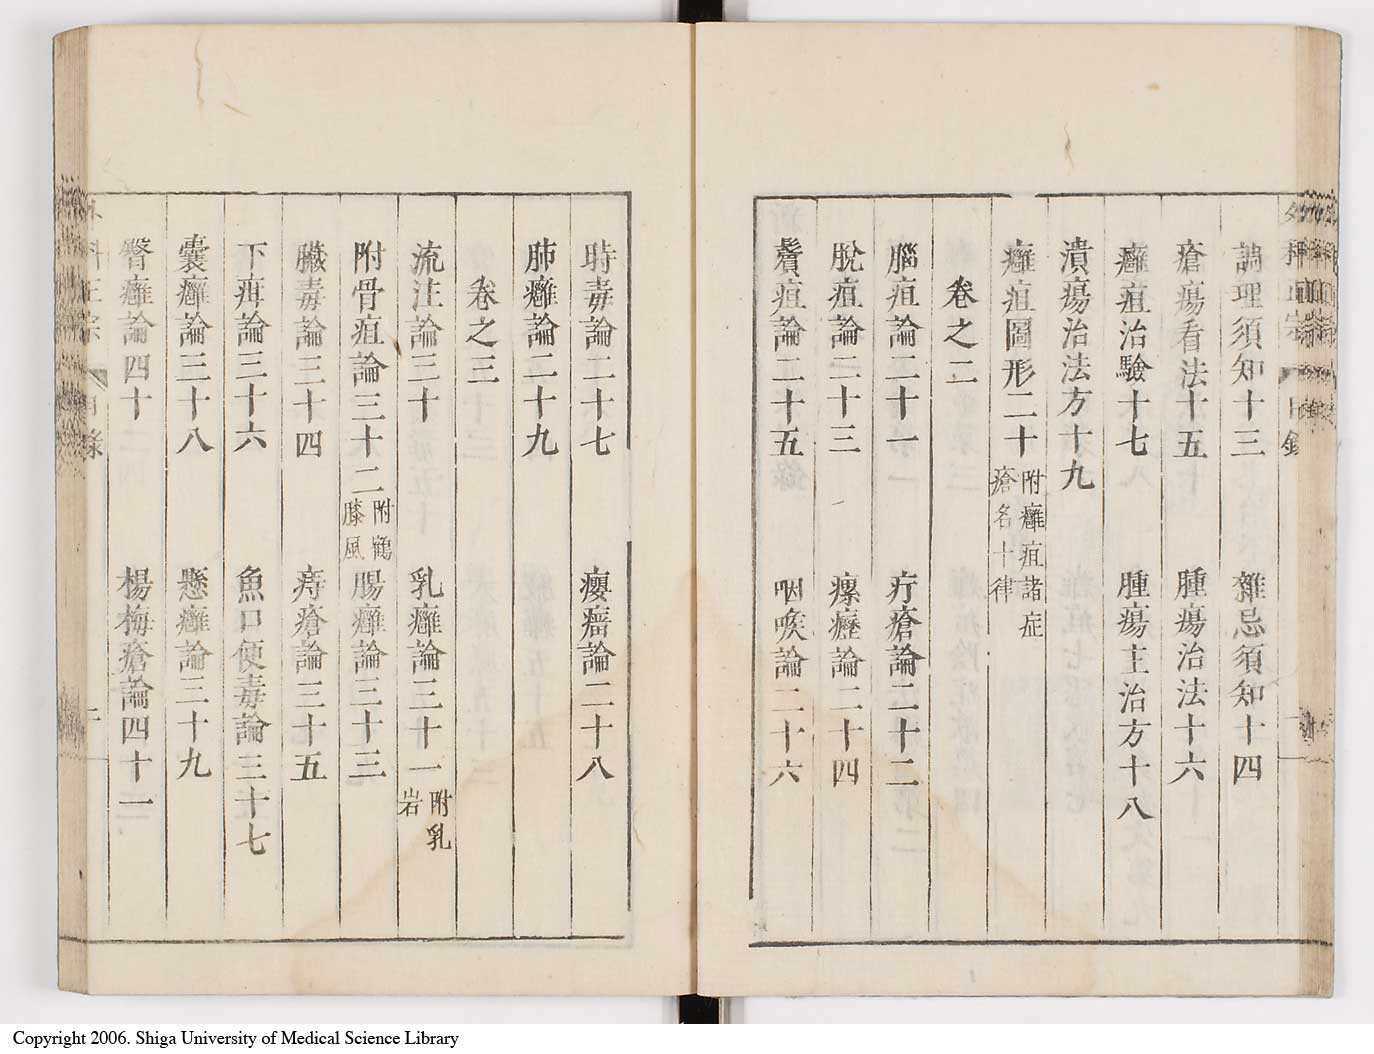 調理須知十三　雜忌須知十四
瘡瘍看法十五　腫瘍治法十六
癰疽治驗十七　腫瘍主治方十八
潰瘍治法方十九
癰疽圖形二十 附癰疽諸症瘡名十律
卷之二
腦疽論二十一　疔瘡論二十二
脫疽論二十三　瘰癧論二十四
鬢疽論二十五　咽喉論二十六
時毒論二十七　癭瘤論二十八
肺癰論二十九
卷之三
流注論三十　乳癰論三十一 附乳岩
附骨疽論三十二 附鶴膝風　腸癰論三十三
臟毒論三十四　痔瘡論三十五
下疳論三十六　魚口便毒論三十七
囊癰論三十八　懸癰論三十九
臀癰論四十　楊梅瘡論四十一
外科正宗　目錄
Copyright 2006. Shiga University of Medical Science Library